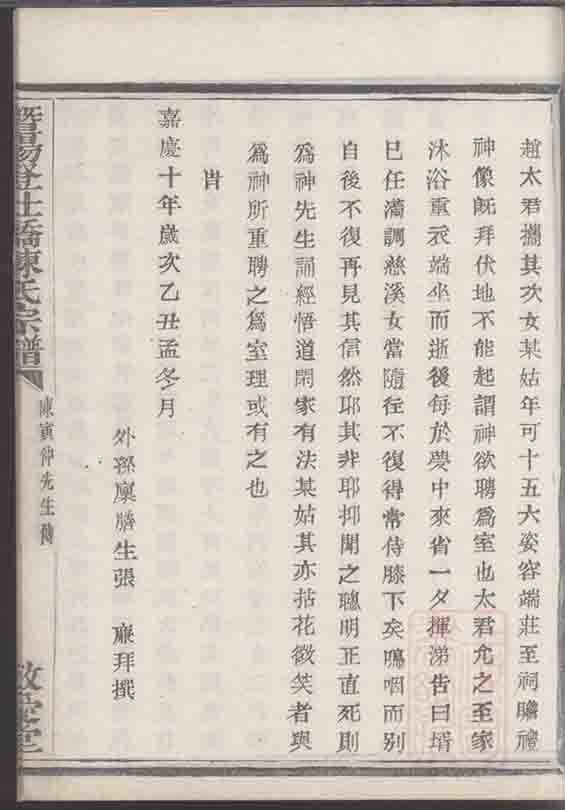 趙太君攜其次女某姑年可十五六姿容端莊至祠瞻禮
神像既拜伏地不能起謂神欲聘為室也太君允之至家
沐浴重衣端坐而逝後每於夢中來省一夕揮涕告曰壻
已任滿調慈溪女當隨往不復得常侍膝下矣鳴咽而別
自後不復再見其信然耶其非耶抑聞之聰明正直死則
為神先生誦經悟道閑家有法某姑其亦拈花微笑者與
為神所重聘之為室理或有之也
旹
嘉慶十年歲次乙丑孟冬月
外孫廩膳生張 廉拜撰
暨陽登仕橋陳氏宗譜
陳寅仲先生傳
敬愛堂